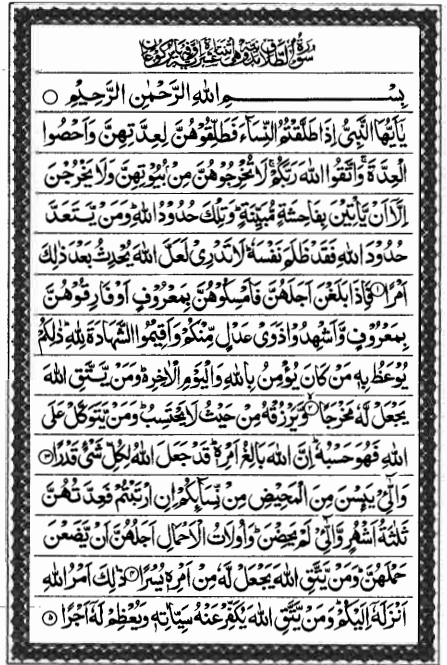 سُوْرَةُ الطَّلَاقِ مَدَنِيَّةٌ وَّهِيَ اثْنَتَا عَشَرَةَ اٰيَةً وَّفِيْهَا رُكُوْعَانِ
بِسْمِ اللهِ الرَّحْمٰنِ الرَّحِيْمِ ○
يٰۤاَيُّهَا النَّبِىُّ اِذَا طَلَّقْتُمُ النِّسَآءَ فَطَلِّقُوْهُنَّ لِعِدَّتِهِنَّ وَاَحْصُوا
الْعِدَّةَ ۚ وَاتَّقُوا اللهَ رَبَّكُمْ ۚ لَا تُخْرِجُوْهُنَّ مِنْۢ بُيُوْتِهِنَّ وَلَا يَخْرُجْنَ
اِلَّاۤ اَنْ يَّاْتِيْنَ بِفَاحِشَةٍ مُّبَيِّنَةٍ ؕ وَتِلْكَ حُدُوْدُ اللهِ ؕ وَمَنْ يَّتَعَدَّ
حُدُوْدَ اللهِ فَقَدْ ظَلَمَ نَفْسَهٗ ؕ لَا تَدْرِىْ لَعَلَّ اللهَ يُحْدِثُ بَعْدَ ذٰلِكَ
اَمْرًا ۝۱ فَاِذَا بَلَغْنَ اَجَلَهُنَّ فَاَمْسِكُوْهُنَّ بِمَعْرُوْفٍ اَوْ فَارِقُوْهُنَّ
بِمَعْرُوْفٍ وَّاَشْهِدُوْا ذَوَىْ عَدْلٍ مِّنْكُمْ وَاَقِيْمُوا الشَّهَادَةَ لِلّٰهِ ؕ ذٰلِكُمْ
يُوْعَظُ بِهٖ مَنْ كَانَ يُؤْمِنُ بِاللهِ وَالْيَوْمِ الْاٰخِرِ ؕ وَمَنْ يَّتَّقِ اللهَ
يَجْعَلْ لَّهٗ مَخْرَجًا ۝۲ وَّيَرْزُقْهُ مِنْ حَيْثُ لَا يَحْتَسِبُ ؕ وَمَنْ يَّتَوَكَّلْ عَلَى
اللهِ فَهُوَ حَسْبُهٗ ؕ اِنَّ اللهَ بَالِغُ اَمْرِهٖ ؕ قَدْ جَعَلَ اللهُ لِكُلِّ شَىْءٍ قَدْرًا ۝۳
وَالّٰٓـِٔىْ يَئِسْنَ مِنَ الْمَحِيْضِ مِنْ نِّسَآئِكُمْ اِنِ ارْتَبْتُمْ فَعِدَّتُهُنَّ
ثَلٰثَةُ اَشْهُرٍ وَّالّٰٓـِٔىْ لَمْ يَحِضْنَ ؕ وَاُولَاتُ الْاَحْمَالِ اَجَلُهُنَّ اَنْ يَّضَعْنَ
حَمْلَهُنَّ ؕ وَمَنْ يَّتَّقِ اللهَ يَجْعَلْ لَّهٗ مِنْ اَمْرِهٖ يُسْرًا ۝۴ ذٰلِكَ اَمْرُ اللهِ
اَنْزَلَهٗۤ اِلَيْكُمْ ؕ وَمَنْ يَّتَّقِ اللهَ يُكَفِّرْ عَنْهُ سَيِّاٰتِهٖ وَيُعْظِمْ لَهٗۤ اَجْرًا ۝۵